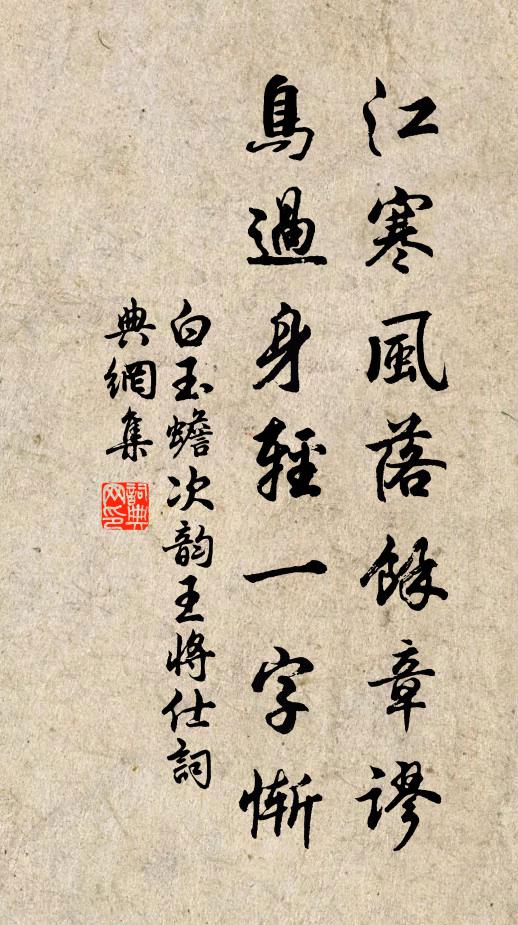 江寒風落餘章謬
鳥過身輕一字慚
白玉蟾次韵王将仕詞
典網集
詞典网印